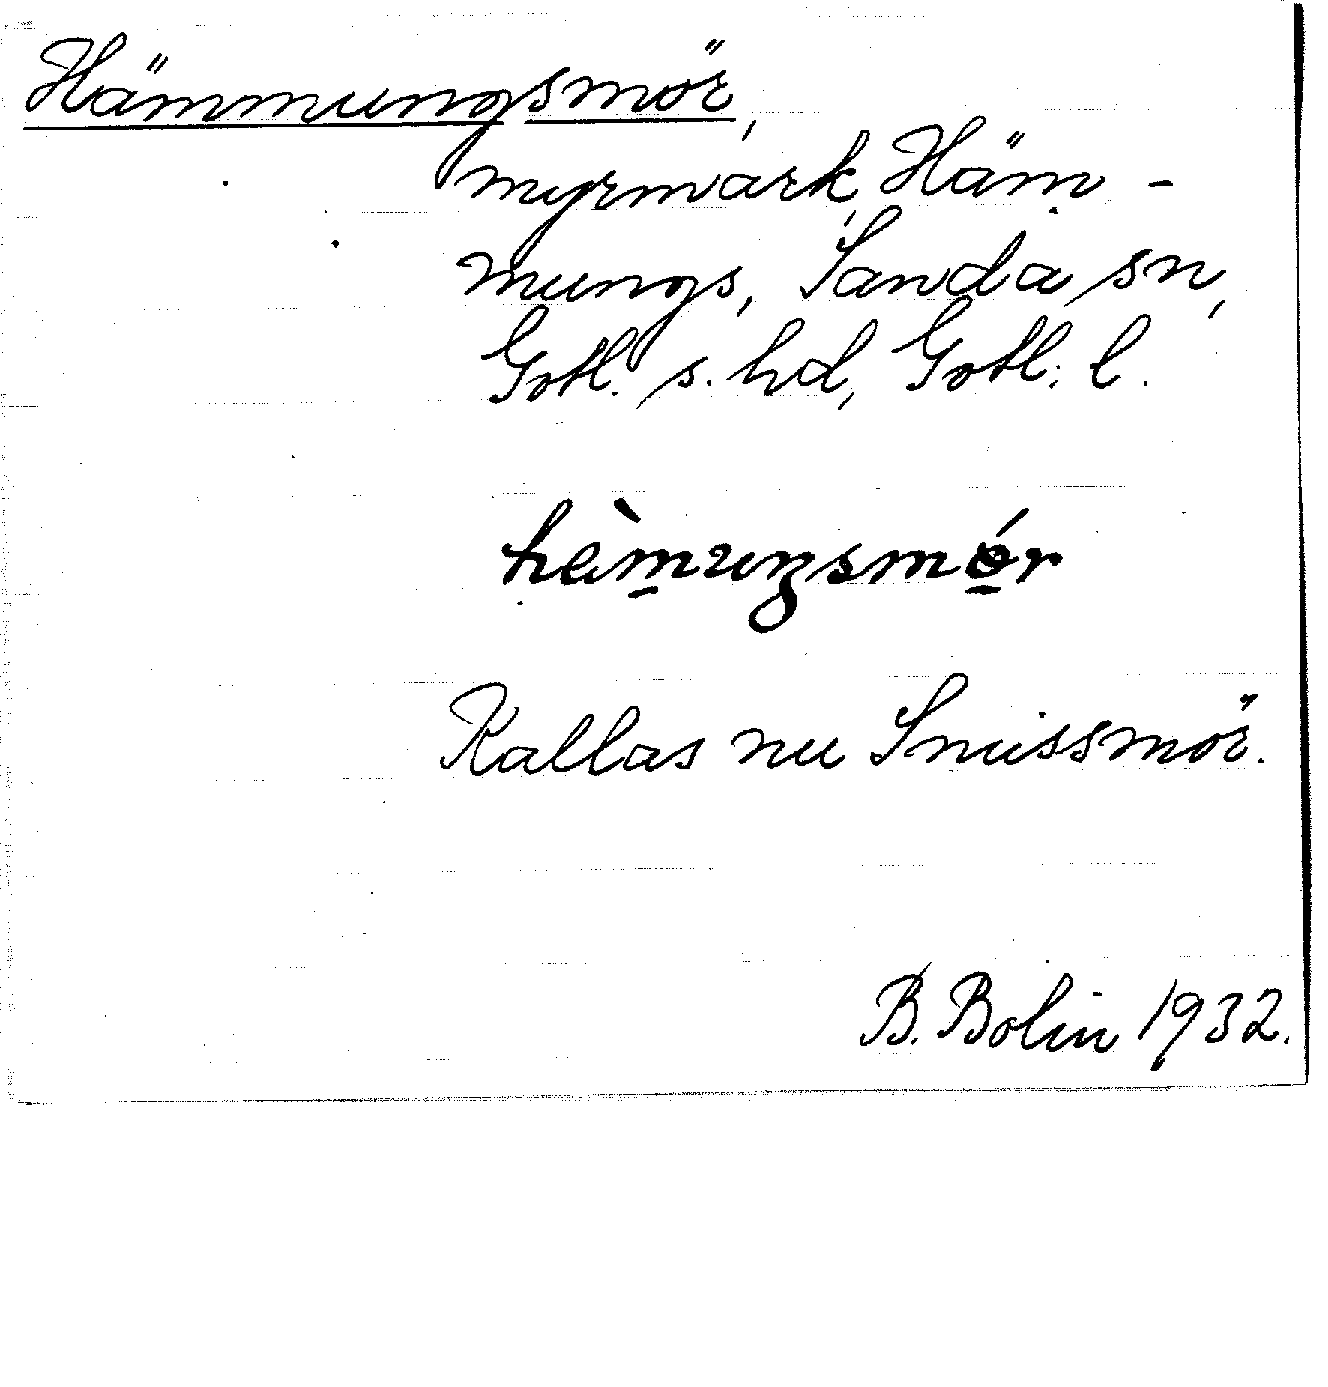 Hämmungsmör,
myrmark, Häm-
mungs, Sanda sn,
Gotl. s. hd, Gotl. l.
hèmuŋsmǿr
Kallas nu Snissmör.
B. Bolin 1932.